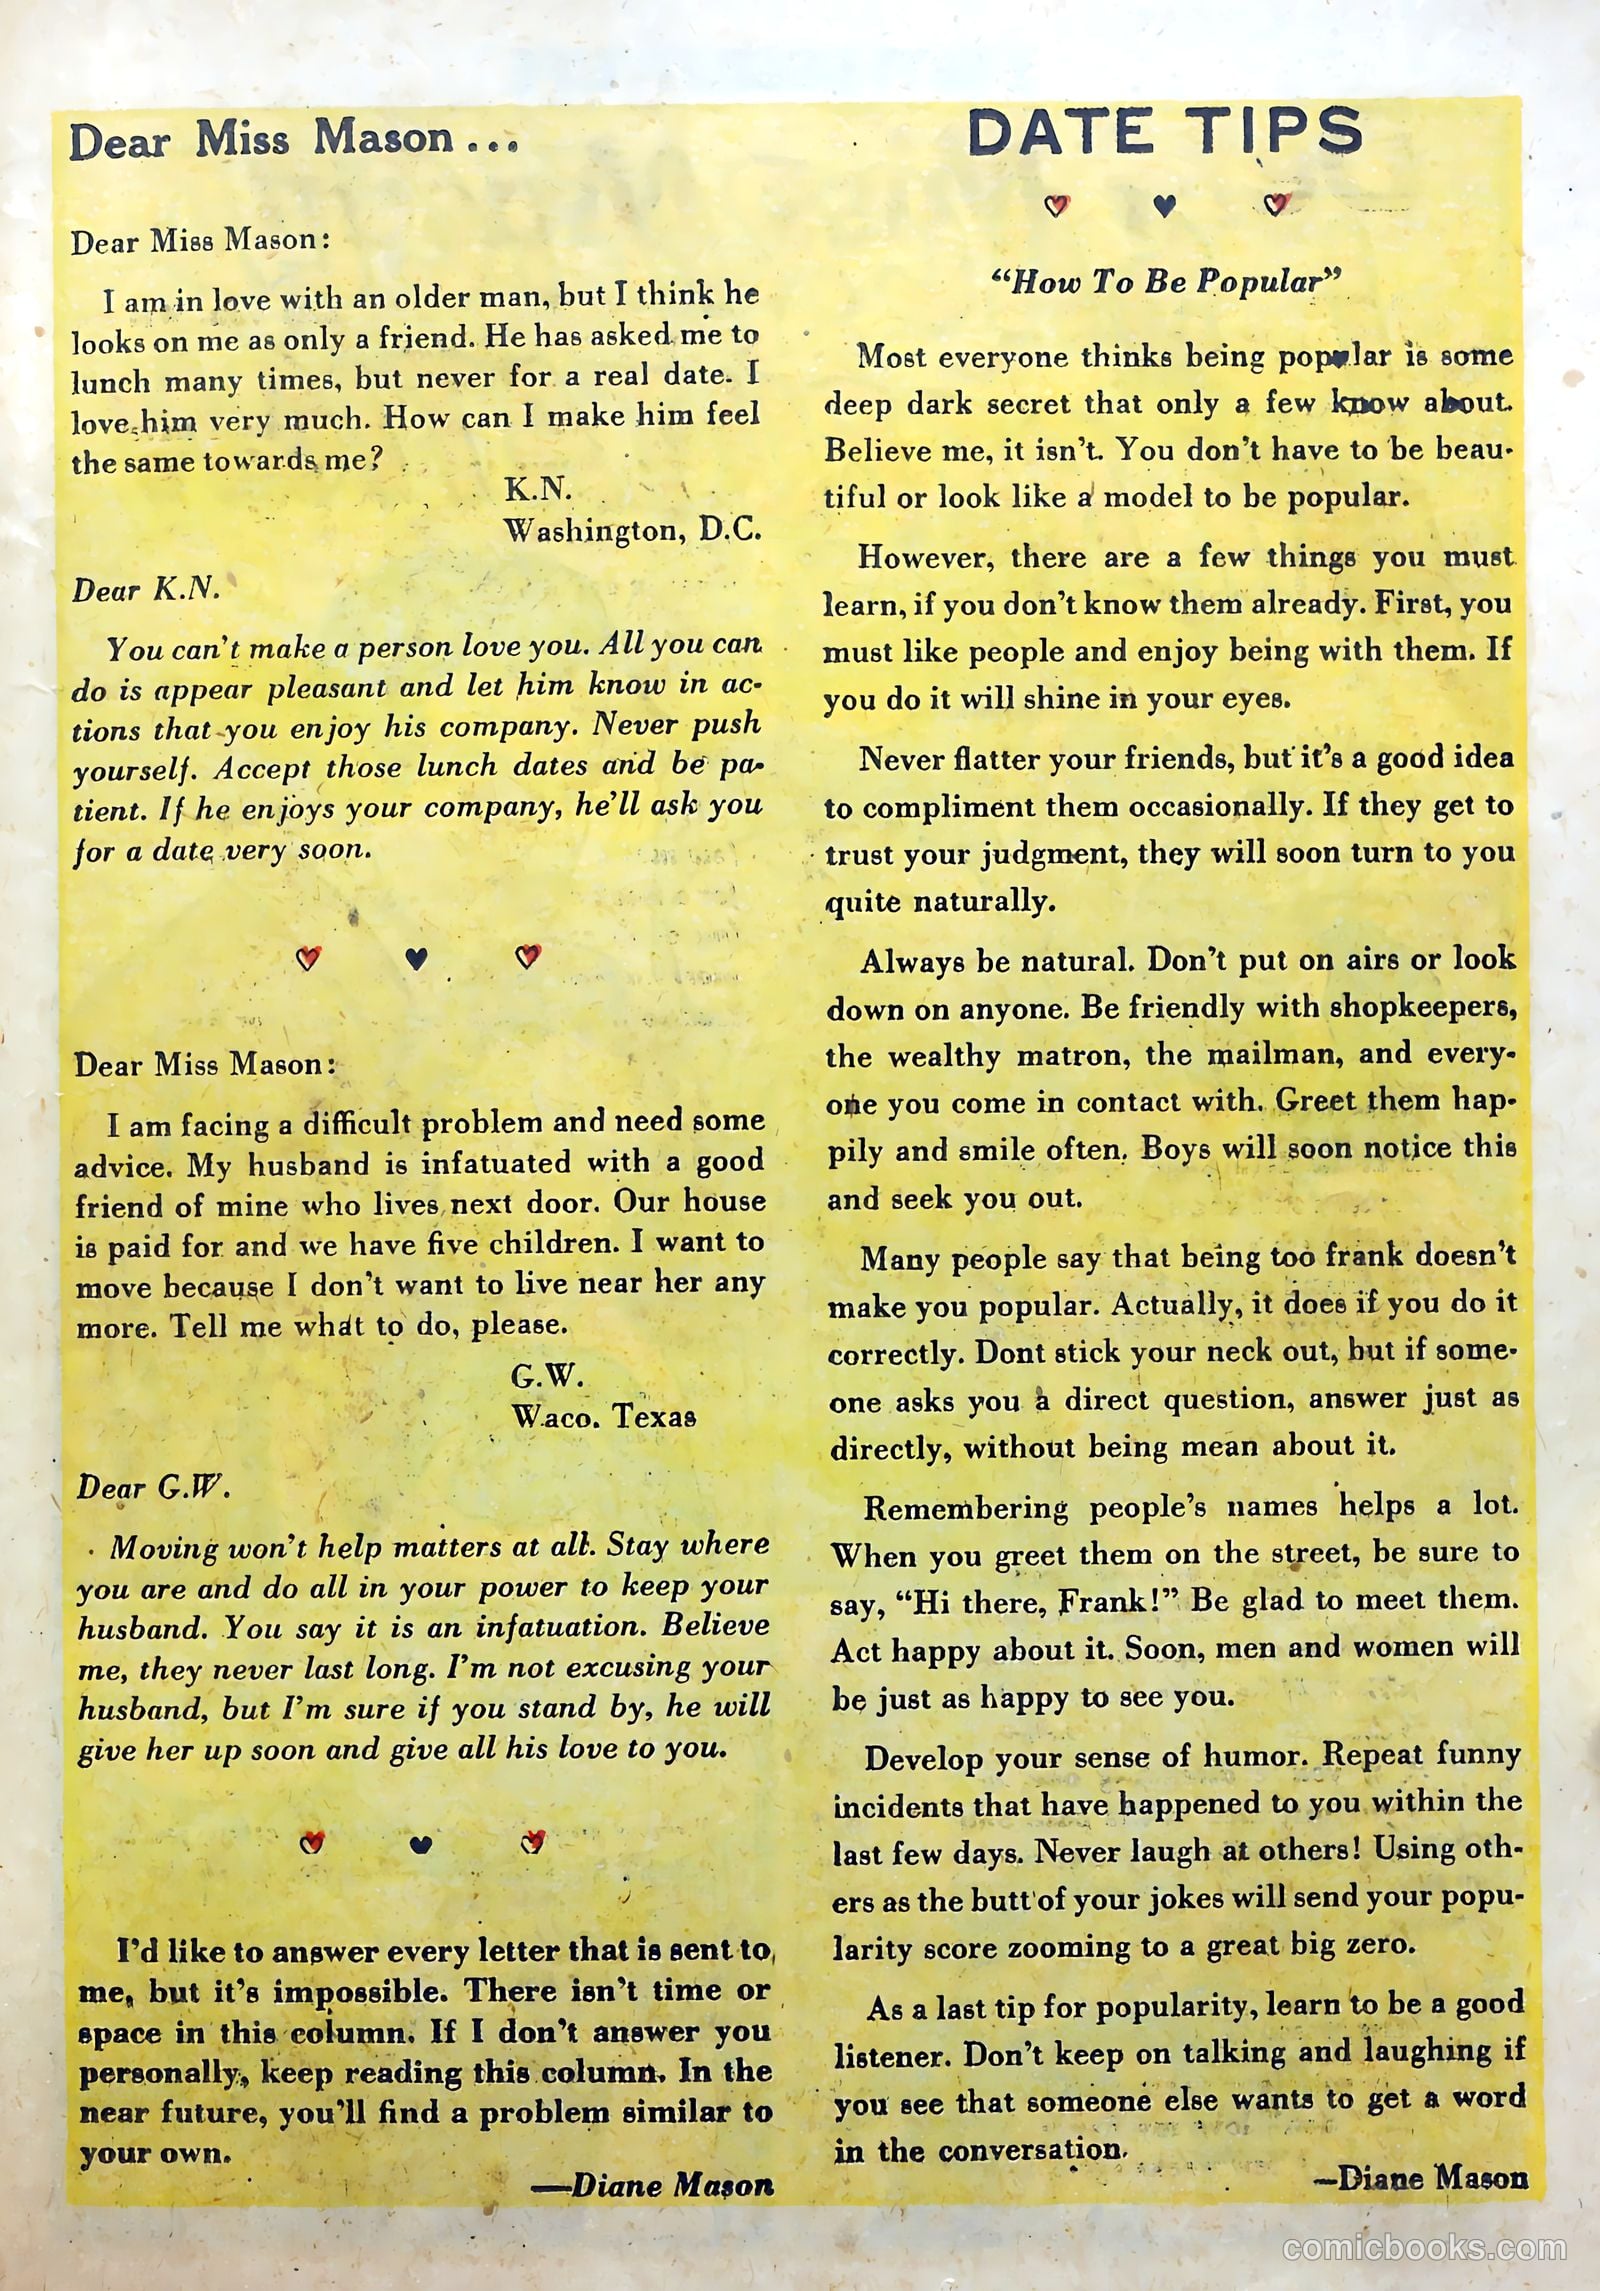 Dear Miss Mason...
Dear Miss Mason:
I am in love with an older man, but I think he
looks on me as only a friend. He has asked me to
lunch many times, but never for a real date. I
love him very much. How can I make him feel
the same towards me?
K.N.
Washington, D.C.
Dear K.N.
You can't make a person love you. All you can
do is appear pleasant and let him know in ac-
tions that you enjoy his company. Never push
yourself. Accept those lunch dates and be pa-
tient. If he enjoys your company, he'll ask you
for a date very soon.
Dear Miss Mason:
I am facing a difficult problem and need some
advice. My husband is infatuated with a good
friend of mine who lives next door. Our house
is paid for and we have five children. I want to
move because I don't want to live near her any
more. Tell me what to do, please.
G.W.
Waco. Texas
Dear G.W.
Moving won't help matters at all. Stay where
you are and do all in your power to keep your
husband. You say it is an infatuation. Believe
me, they never last long. I'm not excusing your
husband, but I'm sure if you stand by, he will
give her up soon and give all his love to you.
I'd like to answer every letter that is sent to
me, but it's impossible. There isn't time or
space in this column. If I don't answer you
personally, keep reading this column. In the
near future, you'll find a problem similar to
your own.
—Diane Mason
DATE TIPS
"How To Be Popular"
Most everyone thinks being popular is some
deep dark secret that only a few know about.
Believe me, it isn't. You don't have to be beau-
tiful or look like a model to be popular.
However, there are a few things you must
learn, if you don't know them already. First, you
must like people and enjoy being with them. If
you do it will shine in your eyes.
Never flatter your friends, but it's a good idea
to compliment them occasionally. If they get to
trust your judgment, they will soon turn to you
quite naturally.
Always be natural. Don't put on airs or look
down on anyone. Be friendly with shopkeepers,
the wealthy matron, the mailman, and every-
one you come in contact with. Greet them hap-
pily and smile often. Boys will soon notice this
and seek you out.
Many people say that being too frank doesn't
make you popular. Actually, it does if you do it
correctly. Dont stick your neck out, but if some-
one asks you a direct question, answer just as
directly, without being mean about it.
Remembering people's names helps a lot.
When you greet them on the street, be sure to
say, "Hi there, Frank!" Be glad to meet them.
Act happy about it. Soon, men and women will
be just as happy to see you.
Develop your sense of humor. Repeat funny
incidents that have happened to you within the
last few days. Never laugh at others! Using oth-
ers as the butt of your jokes will send your popu-
larity score zooming to a great big zero.
As a last tip for popularity, learn to be a good
listener. Don't keep on talking and laughing if
you see that someone else wants to get a word
in the conversation.
—Diane Mason
comicbooks.com